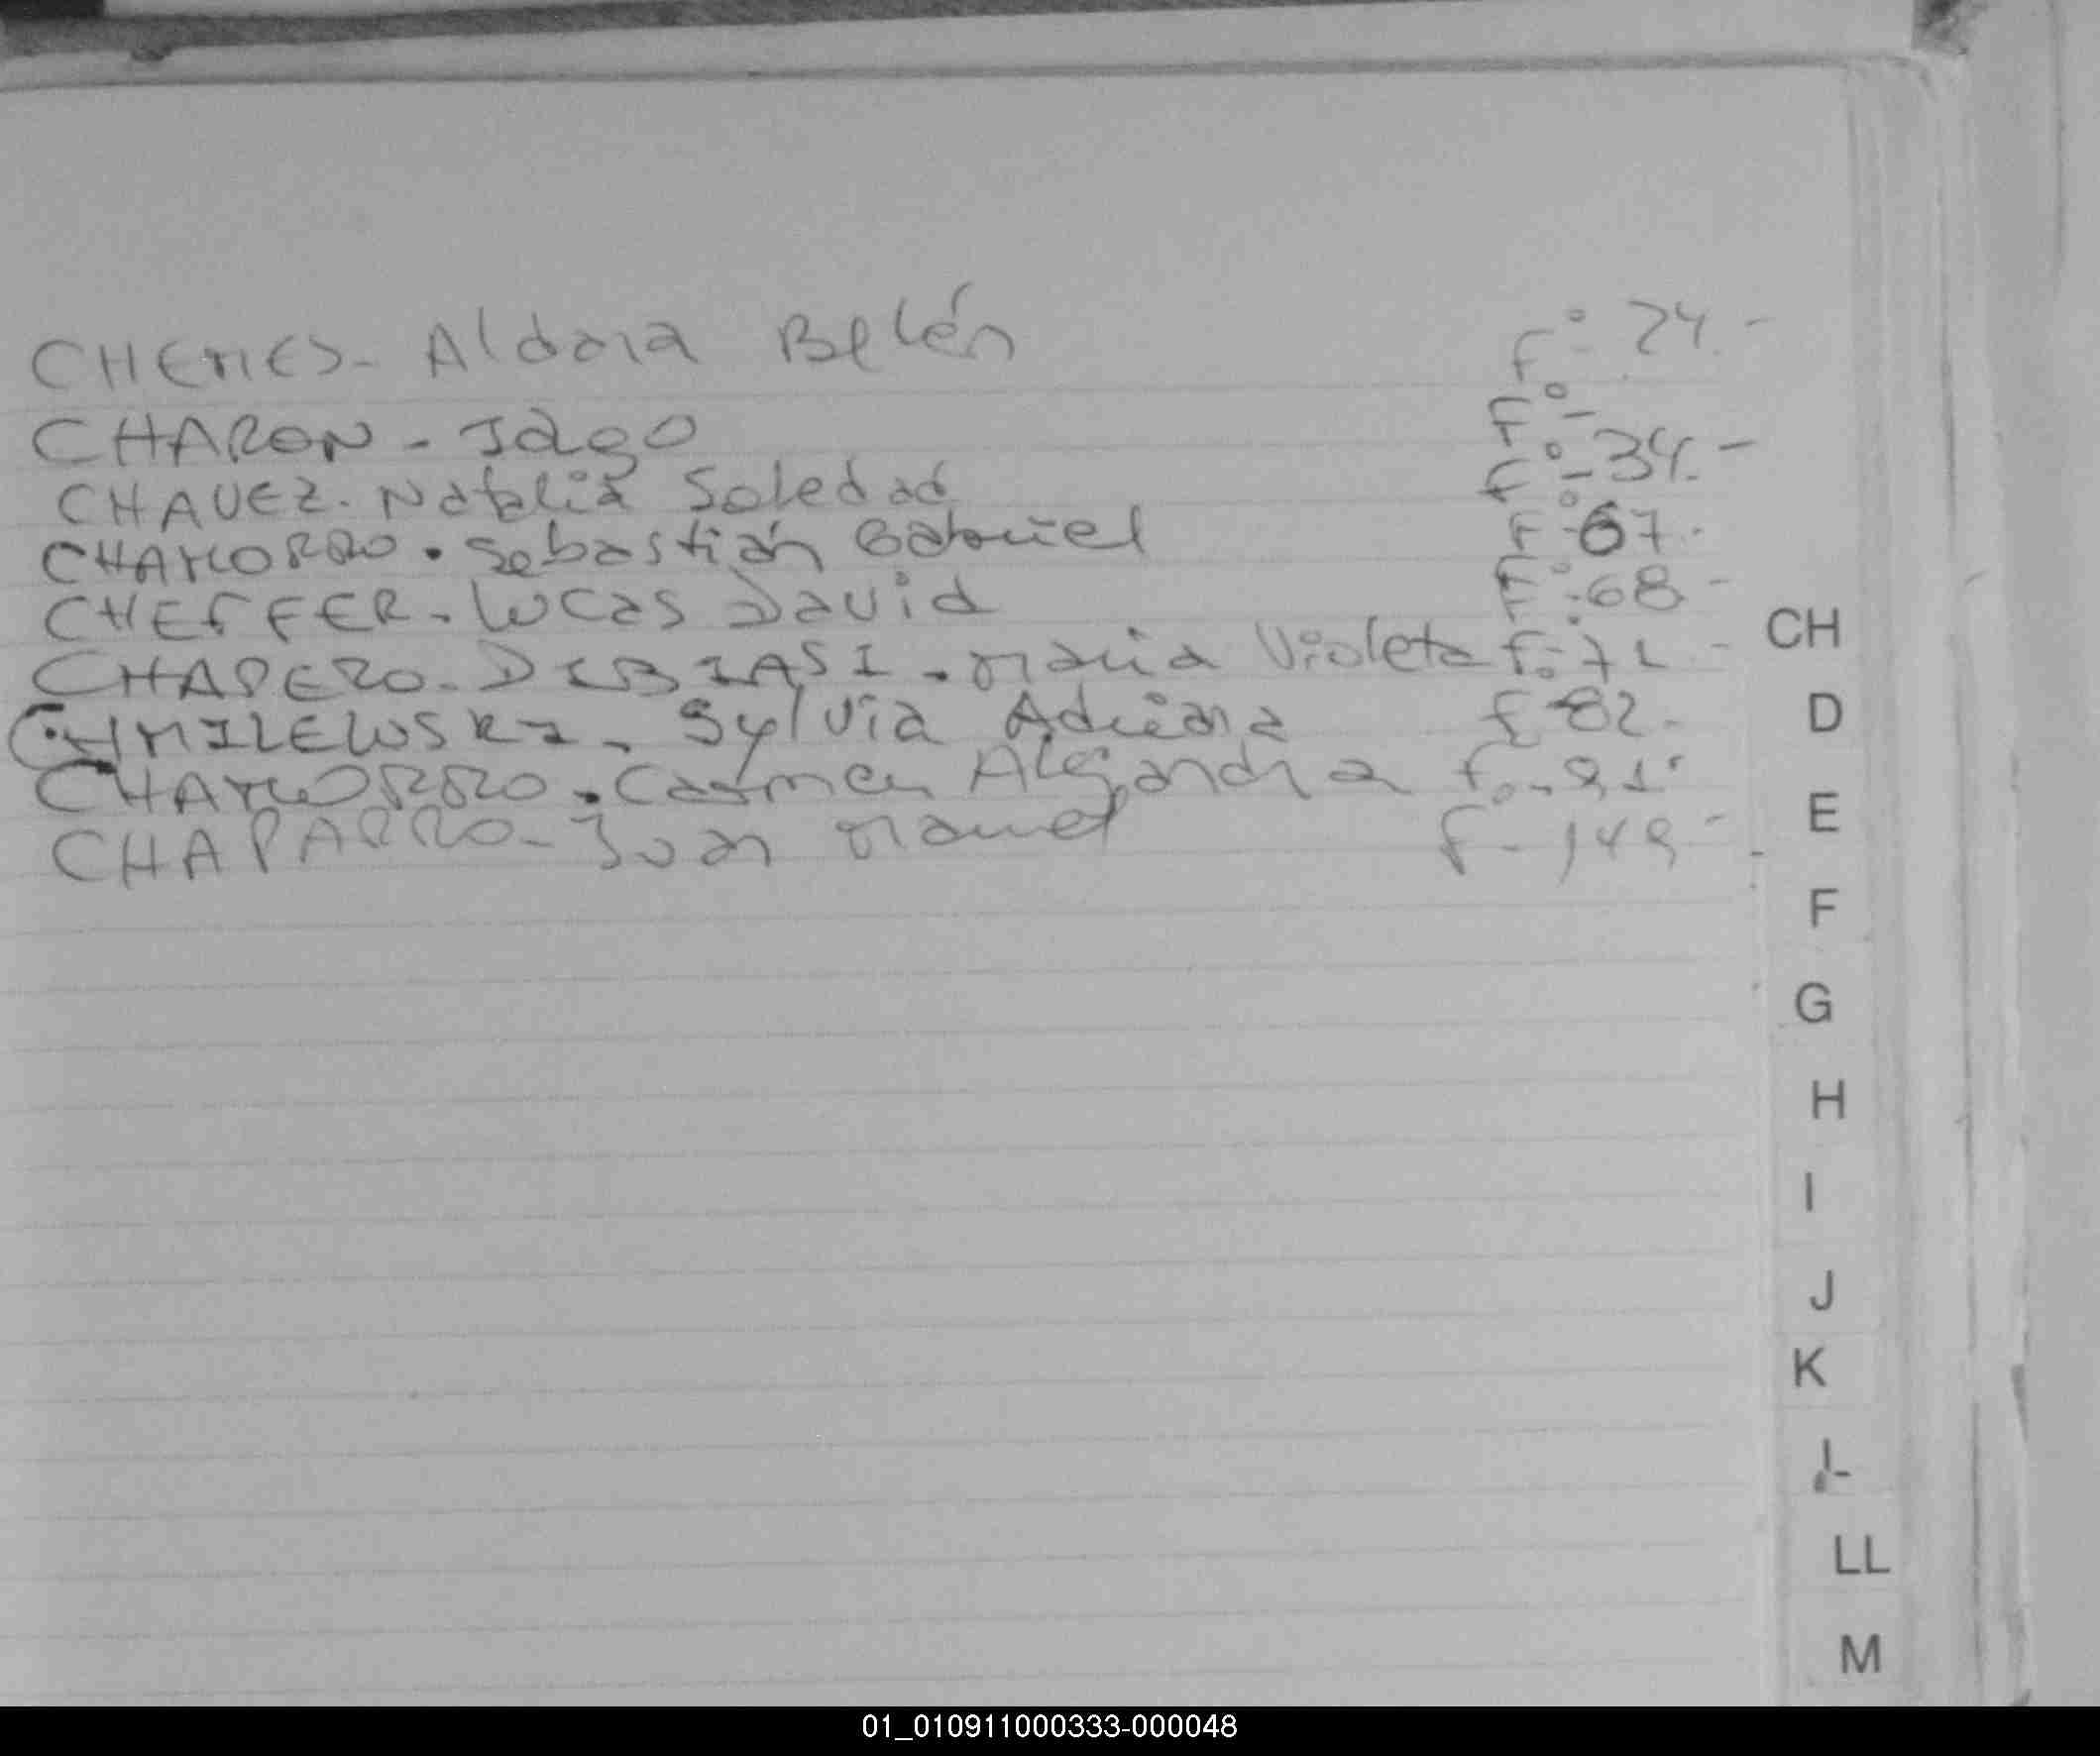 CHEMES - Aldana Belén Fº- 24.-
CHARON - Iago Fº-
CHAVEZ. Natalia Soledad Fº- 34.-
CHAMORRO. Sebastián Gabriel Fº- 67.-
CHEFFER - Lucas David Fº- 68-
CHAPERO - DEBIASI - Maria Violeta Fº-
CHMILEWSKI - Sylvia Adriana F- 82-
CHAMORRO. Carmen Alejandra Fº- 91-
CHAPARRO - Juan Manuel F- 149-
CH
D
E
F
G
H
I
J
K
L
LL
M
01_010911000333-000048